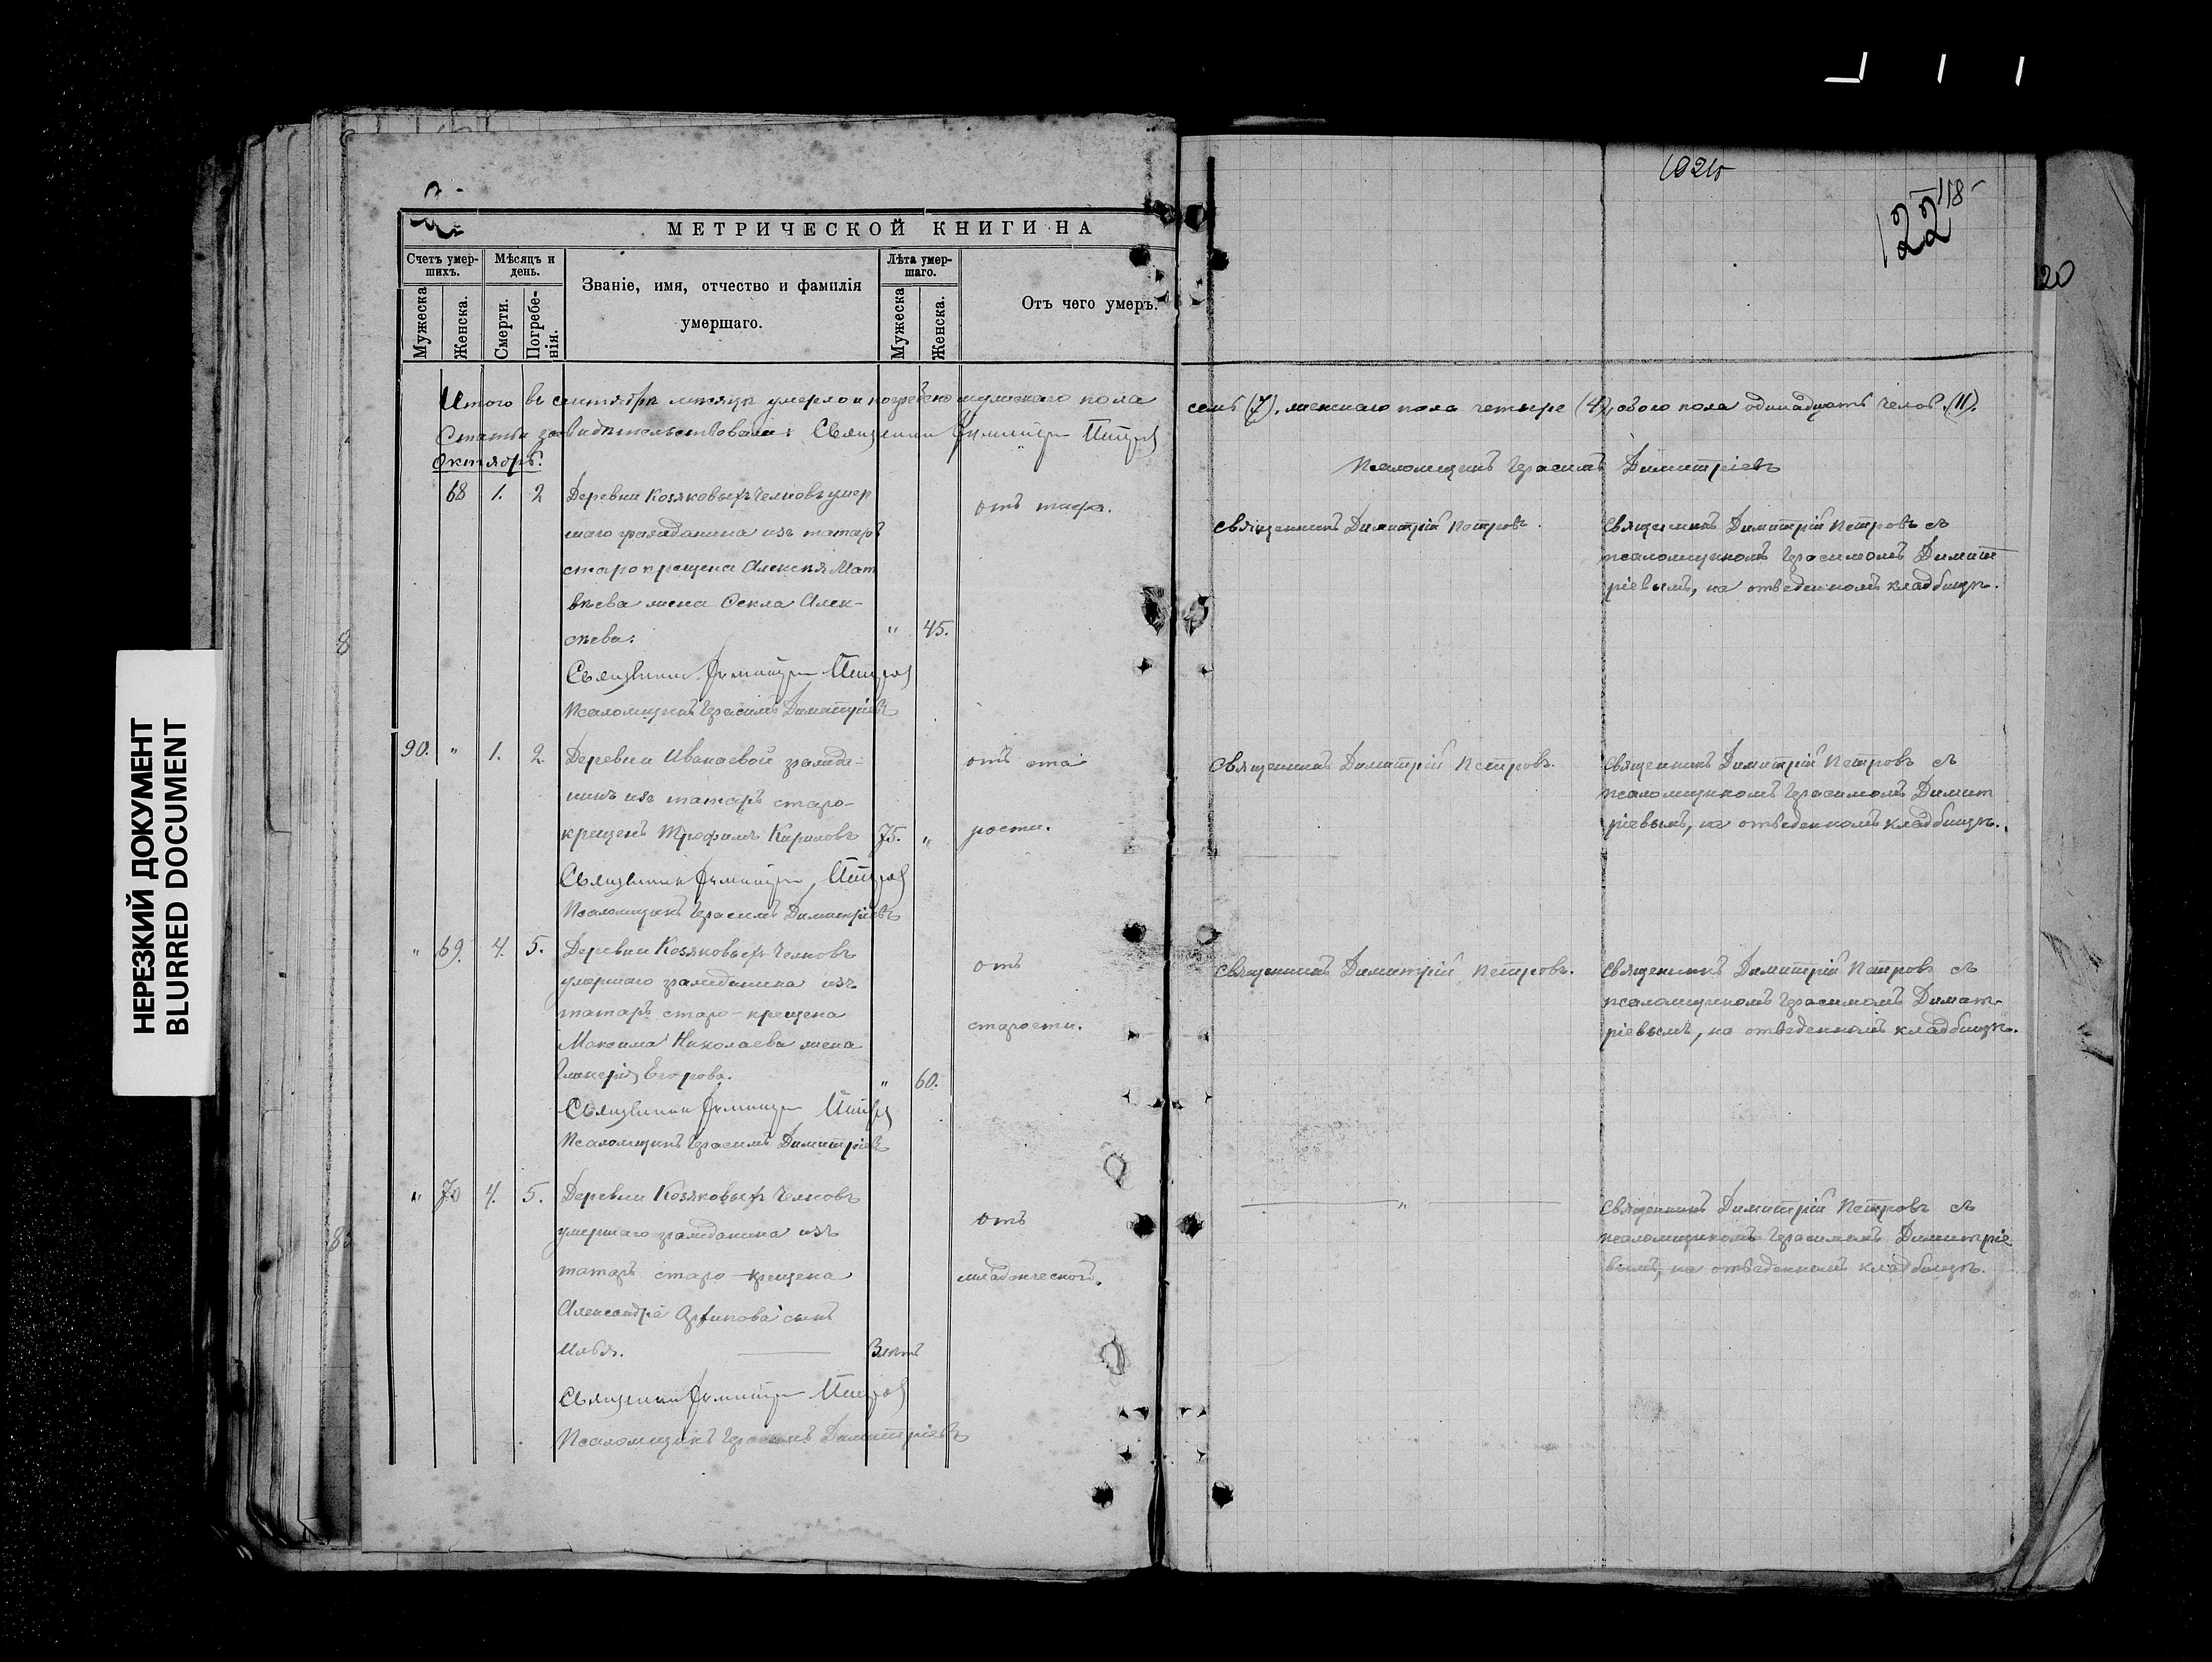 НЕРЕЗКИЙ ДОКУМЕНТ
BLURRED DOCUMENT
МЕТРИЧЕСКОЙ КНИГИ НА
Счетъ умер-
шихъ.
Мужеска
Женска.
Мѣсяцъ и
день.
Смерти.
Погребе-
нія.
Званіе, имя, отчество и фамилія
умершаго.
Лѣта умер-
шаго.
Мужеска
Женска.
Отъ чего умеръ.
122
118
20
Итого въ сентябрѣ мѣсяцѣ умерло и погребено мужескаго пола
семь (7), женскаго пола четыре (4), обоего пола одинадцать челов. (11).
Статьи засвидѣтельствовали: Священникъ Димитрій Петровъ
Псаломщикъ Герасимъ Димитріевъ
Октябрь.
68 1. 2 Деревни Козяковыхъ Челновъ умер
шаго гражданина изъ татаръ
старокрещена Алексѣя Мат
вѣева жена Ѳекла Алек-
сѣева. " 45.
отъ тифа.
Священникъ Димитрій Петровъ.
Священникъ Димитрій Петровъ съ
псаломщикомъ Герасимомъ Димит
ріевымъ, на отведенномъ кладбищѣ.
Священникъ Димитрій Петровъ
Псаломщикъ Герасимъ Димитріевъ
90. " 1. 2. Деревни Иванаевой гражда-
нинъ изъ татаръ старо-
крещенъ Трофимъ Кириловъ 75. "
отъ ста
рости.
Священникъ Димитрій Петровъ.
Священникъ Димитрій Петровъ съ
псаломщикомъ Герасимомъ Димит
ріевымъ, на отведенномъ кладбищѣ.
Священникъ Димитрій Петровъ
Псаломщикъ Герасимъ Димитріевъ
" 69. 4. 5. Деревни Козяковыхъ Челновъ
умершаго гражданина изъ
татаръ старо-крещена
Максима Николаева жена
Гликерія Егорова. " 60.
отъ
старости.
Священникъ Димитрій Петровъ.
Священникъ Димитрій Петровъ съ
псаломщикомъ Герасимомъ Димит-
ріевымъ, на отведенномъ кладбищѣ.
Священникъ Димитрій Петровъ
Псаломщикъ Герасимъ Димитріевъ
" 70 4. 5. Деревни Козяковыхъ Челновъ
умершаго гражданина изъ
татаръ старо-крещена
сынъ
Илья.
отъ
младенческой.
"
Священникъ Димитрій Петровъ съ
псаломщикомъ Герасимомъ Димитріе
вымъ, на отведенномъ кладбищѣ.
Священникъ Димитрій Петровъ
Псаломщикъ Герасимъ Димитріевъ